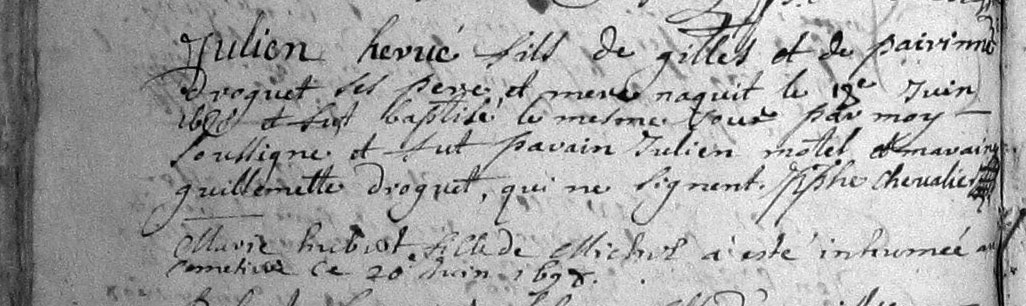 Julien hervé fils de gilles et de pairinne
droguet ses pere et mere naquit le 19e Juin
1698 et fut baptisé le mesme Jour par moy
soussigne et fut parain Julien motel et maraine
guillemette droguet, qui ne signent. Jiphe Chevalier
Marie hubert fille de Michel a esté inhumée au
cemetiere ce 20 Juin 1698.